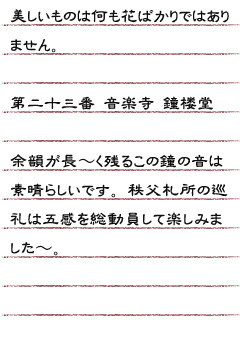 美しいものは何も花ばかりではあり
ません。
第二十三番 音楽寺 鐘楼堂
余韻が長〜く残るこの鐘の音は
素晴らしいです。 秩父札所の巡
礼は五感を総動員して楽しみま
した〜。